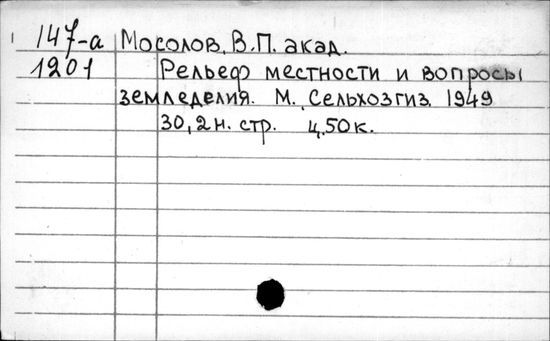 147-а Мосолов, В.П. акад.
1201 Рельеф местности и вопросы
земледелия. М., Сельхозгиз, 1949
30, 2 н. стр. ц. 50 к.